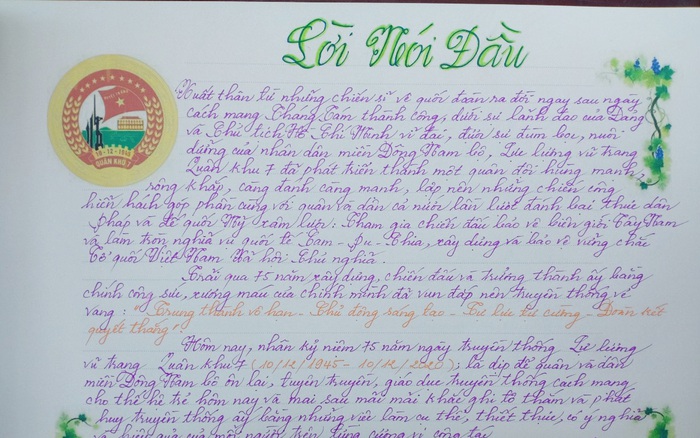 Lời Nói Đầu
QUÂN KHU 7
Xuất thân từ những chiến sĩ vệ quốc đoàn ra đời ngay sau ngày
cách mạng Tháng Tám thành công, dưới sự lãnh đạo của Đảng
và Chủ tịch Hồ Chí Minh vĩ đại, dưới sự đùm bọc, nuôi
dưỡng của nhân dân miền Đông Nam bộ, Lực lượng vũ trang
Quân khu 7 đã phát triển thành một quân đội hùng mạnh,
rộng khắp, càng đánh càng mạnh, lập nên những chiến công
hiển hách góp phần cùng với quân và dân cả nước lần lượt đánh bại thực dân
Pháp và đế quốc Mỹ xâm lược: Tham gia chiến đấu bảo vệ biên giới Tây Nam
và làm tròn nghĩa vụ quốc tế Cam - Pu - Chia, xây dựng và bảo vệ vững chắc
Tổ quốc Việt Nam Xã hội Chủ nghĩa.
Trải qua 75 năm xây dựng, chiến đấu và trưởng thành ấy bằng
chính công sức, xương máu của chính mình đã vun đắp nên truyền thống vẻ
vang: "Trung thành vô hạn - Chủ động sáng tạo - Tự lực tự cường - Đoàn kết
quyết thắng"
Hôm nay, nhân kỷ niệm 75 năm ngày truyền thống Lực lượng
vũ trang Quân khu 7 (10/12/1945 - 10/12/2020); là dịp để quân và dân
miền Đông Nam bộ ôn lại, tuyên truyền, giáo dục truyền thống cách mạng
cho thế hệ trẻ hôm nay và mai sau mãi mãi khắc ghi tô thắm và phát
huy truyền thống ấy bằng những việc làm cụ thể, thiết thực, có ý nghĩa
và hiệu quả của mỗi người trên từng cương vị công tác